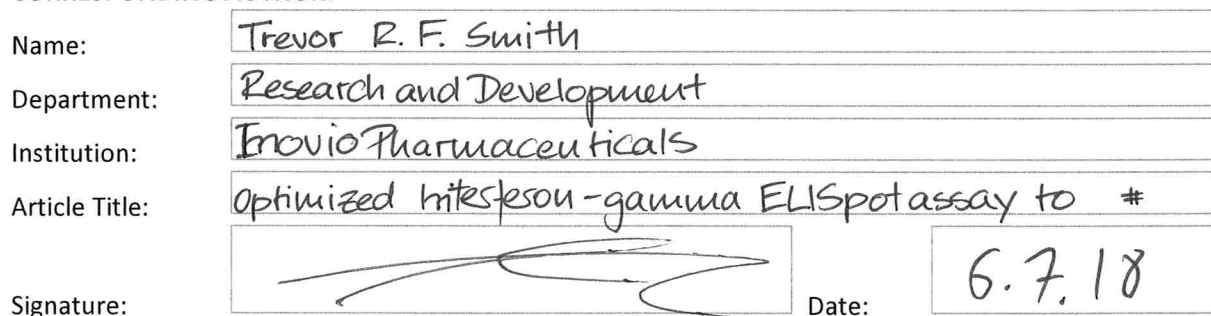 Name: Trevor R. F. Smith
Department: Research and Development
Institution: Inovio Pharmaceuticals
Article Title: Optimized interferon-gamma ELISpot assay to #
Signature: Date: 6.7.18